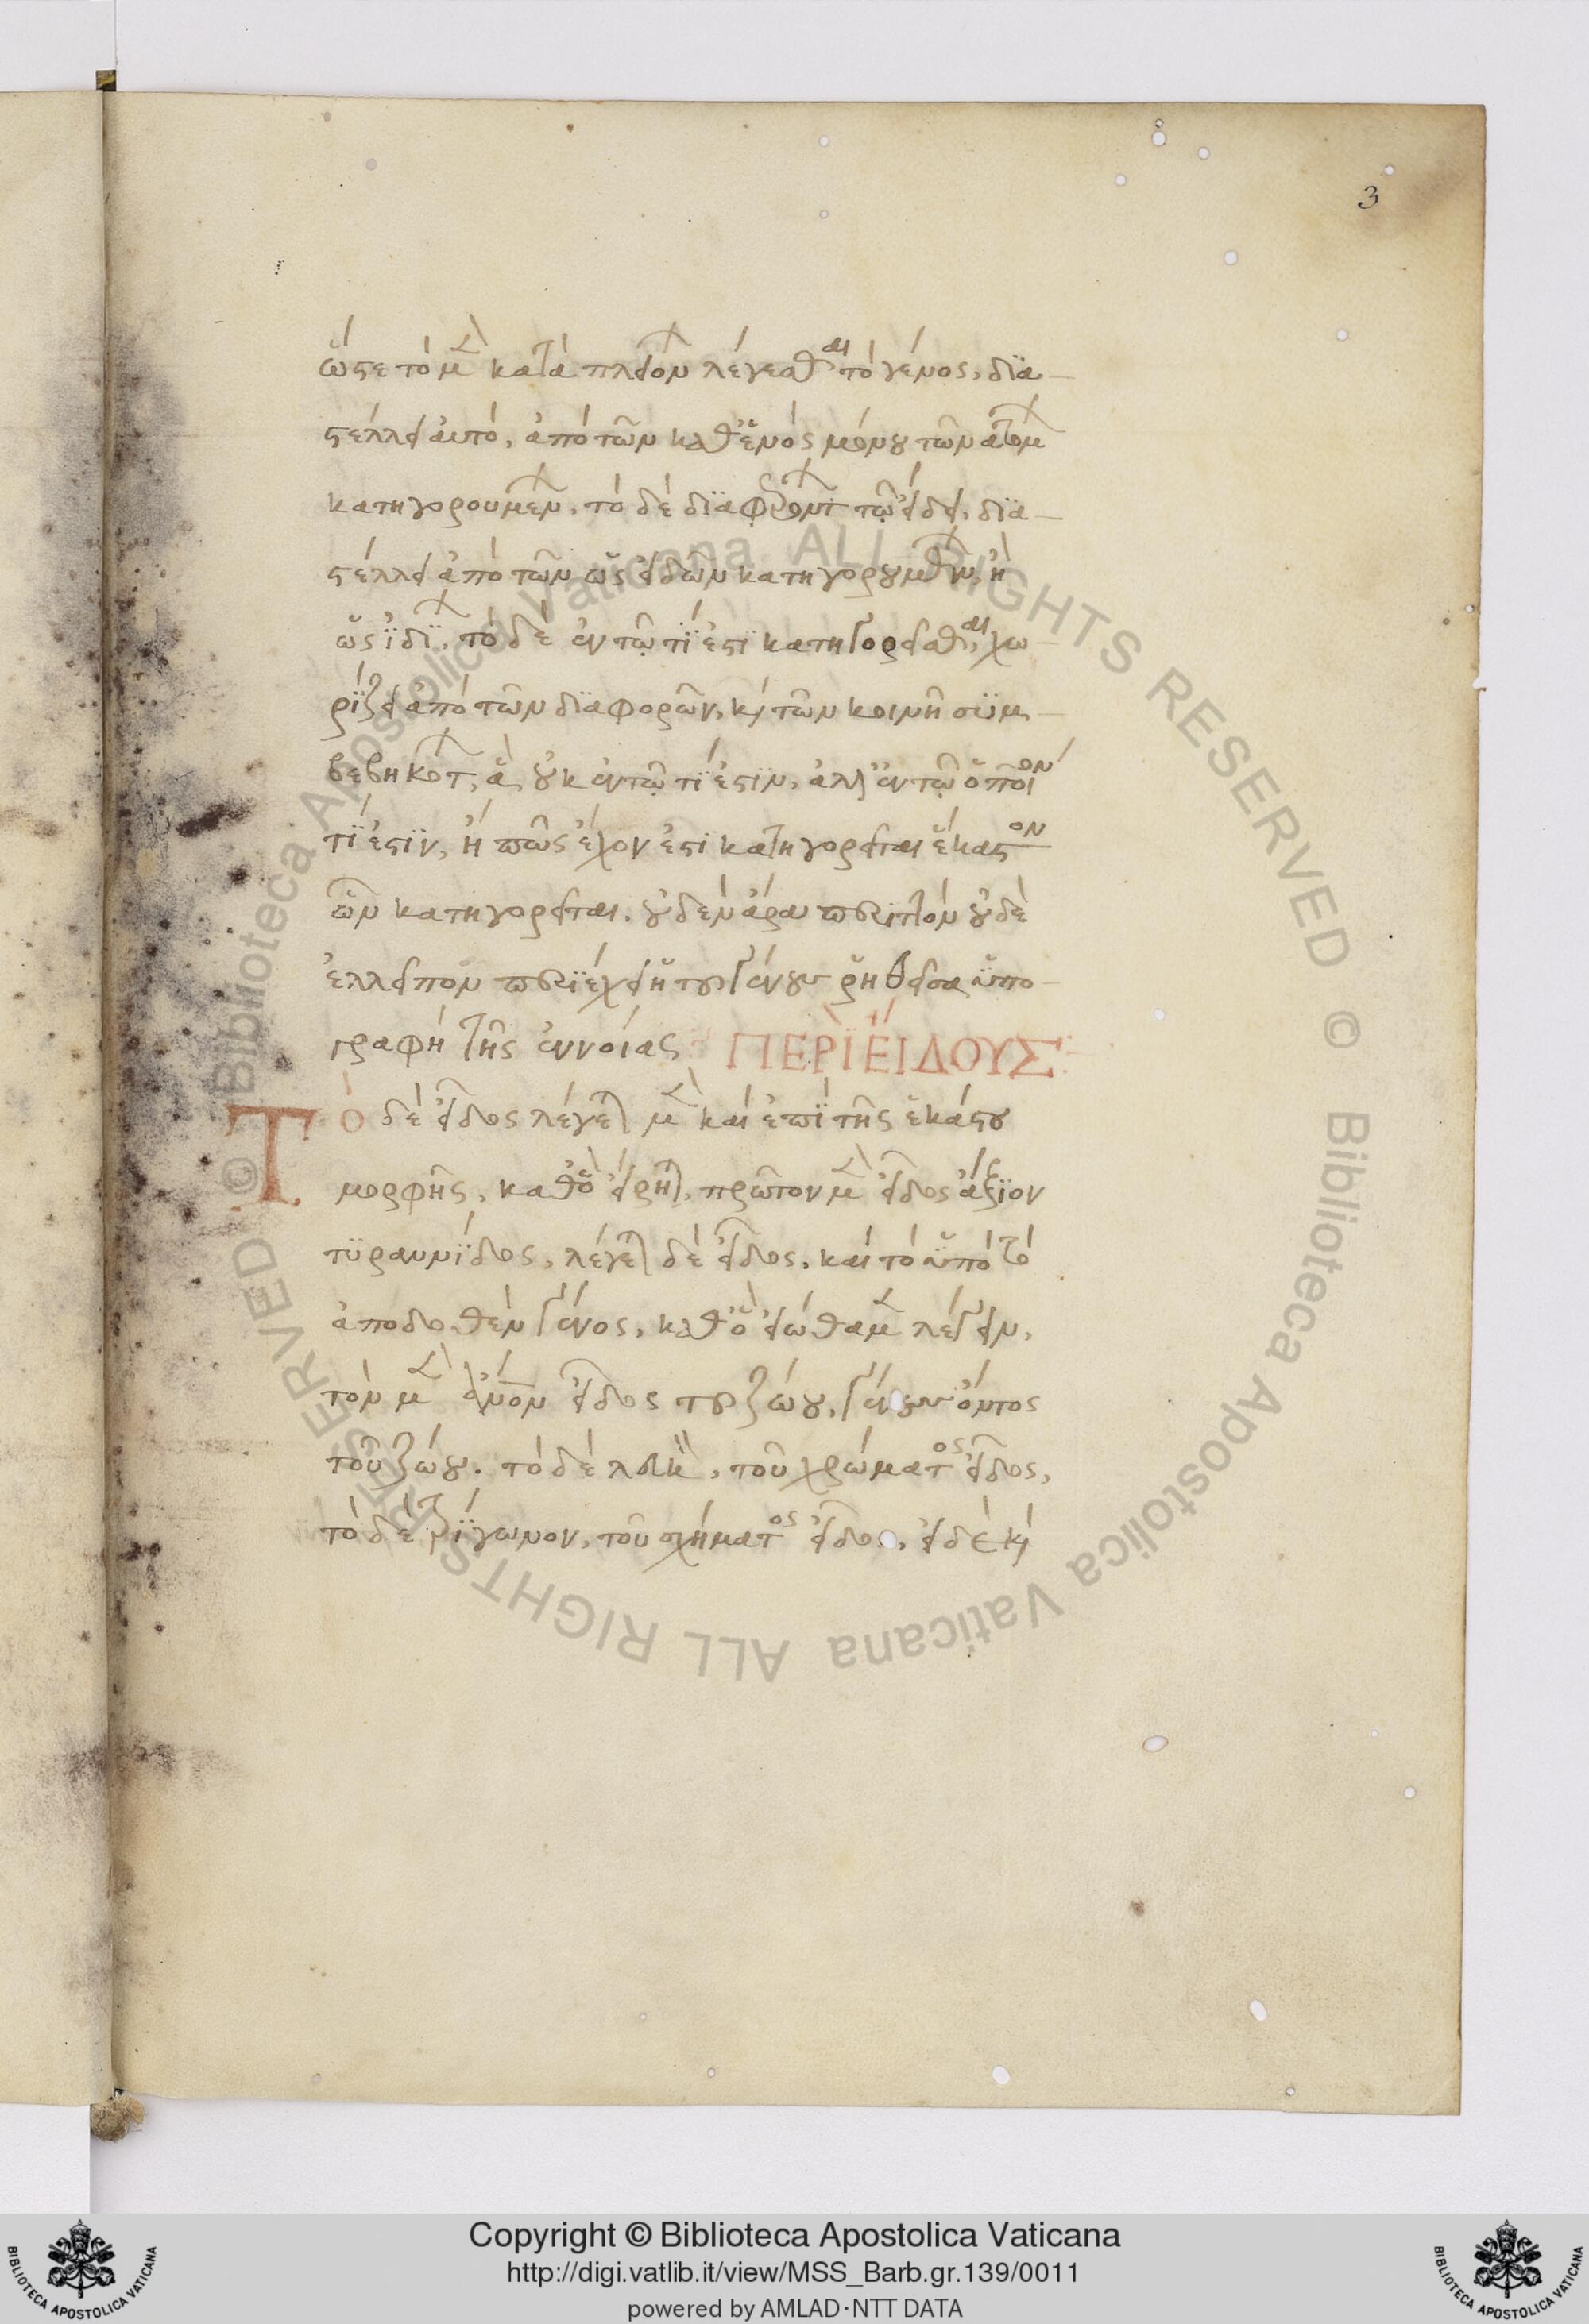 3
ὥστε τὸ μὲν κατὰ πλειόνων λέγεσθαι τὸ γένος, δια
στέλλει αὐτὸ, ἀπὸ τῶν καθενὸς μόνου τῶν ἀτόμων
κατηγορουμένων. τὸ δὲ διαφερόντων τῷ εἴδει, δια
στέλλει ἀπὸ τῶν ὡς εἰδῶν κατηγορουμένων, ἢ
ὡς ἰδίων. τὸ δὲ ἐν τῷ τί ἐστι κατηγορεῖσθαι, χω
ρίζει ἀπὸ τῶν διαφορῶν, καὶ τῶν κοινῇ συμ
βεβηκότων, ἃ οὐκ ἐν τῷ τί ἐστιν, ἀλλ' ἐν τῷ ὁποῖον
τί ἐστιν, ἢ πῶς ἔχον ἐστὶ κατηγορεῖται ἕκαστον
ὧν κατηγορεῖται. οὐδὲν ἄρα περιττὸν οὐδὲ
ἐλλεῖπον περιέχει ἡ τοῦ γένους ῥηθεῖσα ὑπο
γραφὴ τῆς ἐννοίας ΠΕΡῚ ΕἼΔΟΥΣ
Τὸ δὲ εἶδος λέγεται μὲν καὶ ἐπὶ τῆς ἑκάστου
μορφῆς, καθὸ εἴρηται, πρῶτον μὲν εἶδος ἄξιον
τυραννίδος, λέγεται δὲ εἶδος, καὶ τὸ ὑπὸ τὸ
ἀποδοθὲν γένος, καθὸ εἰώθαμεν λέγειν,
τὸν μὲν ἄνθρωπον εἶδος τοῦ ζώου, γένους ὄντος
τοῦ ζώου. τὸ δὲ λευκὸν, τοῦ χρώματος εἶδος,
τὸ δὲ τρίγωνον, τοῦ σχήματος εἶδος, εἰ δὲ καὶ
Copyright © Biblioteca Apostolica Vaticana
http://digi.vatlib.it/view/MSS_Barb.gr.139/0011
powered by AMLAD·NTT DATA
BIBLIOTECA APOSTOLICA VATICANA
BIBLIOTECA APOSTOLICA VATICANA
© Biblioteca Apostolica Vaticana ALL RIGHTS RESERVED
© Biblioteca Apostolica Vaticana ALL RIGHTS RESERVED